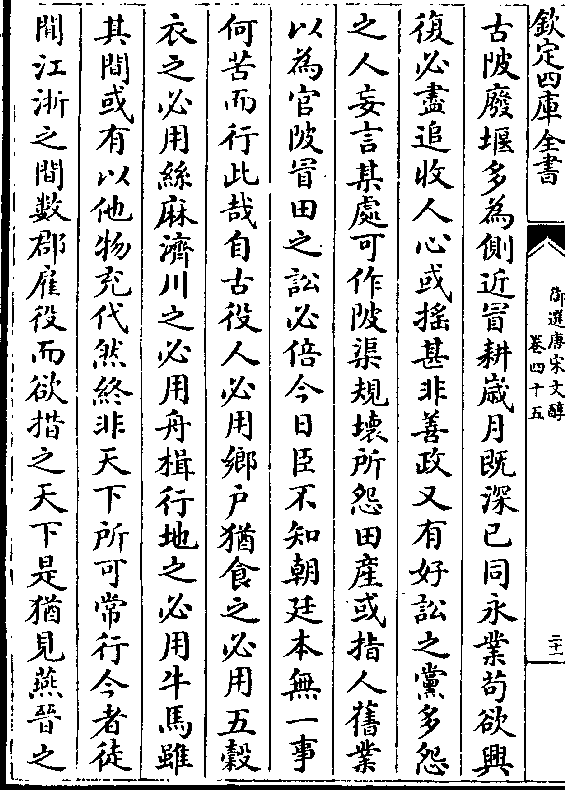 欽定四庫全書
御選唐宋文醇
卷四十五
二十一
古陂廢堰多為側近冒耕嵗月既深已同永業苟欲興
復必盡追收人心或揺甚非善政又有好訟之黨多怨
之人妄言某處可作陂渠規壞所怨田産或指人舊業
以為官陂冒田之訟必倍今日臣不知朝廷本無一事
何苦而行此哉自古役人必用鄉户猶食之必用五穀
衣之必用絲麻濟川之必用舟楫行地之必用牛馬雖
其間或有以他物充代然終非天下所可常行今者徒
聞江浙之間數郡雇役而欲措之天下是猶見燕晉之